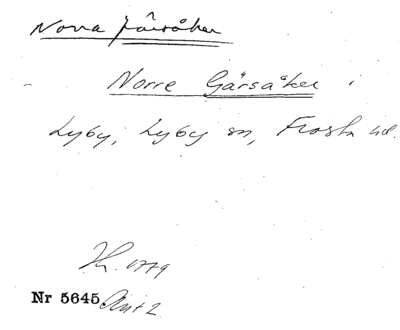 Norra Gårsåker
Norre Gärsåker i
Lyby, Lyby sn, Frosta hd.
1779
Nr 5645 Akt 2